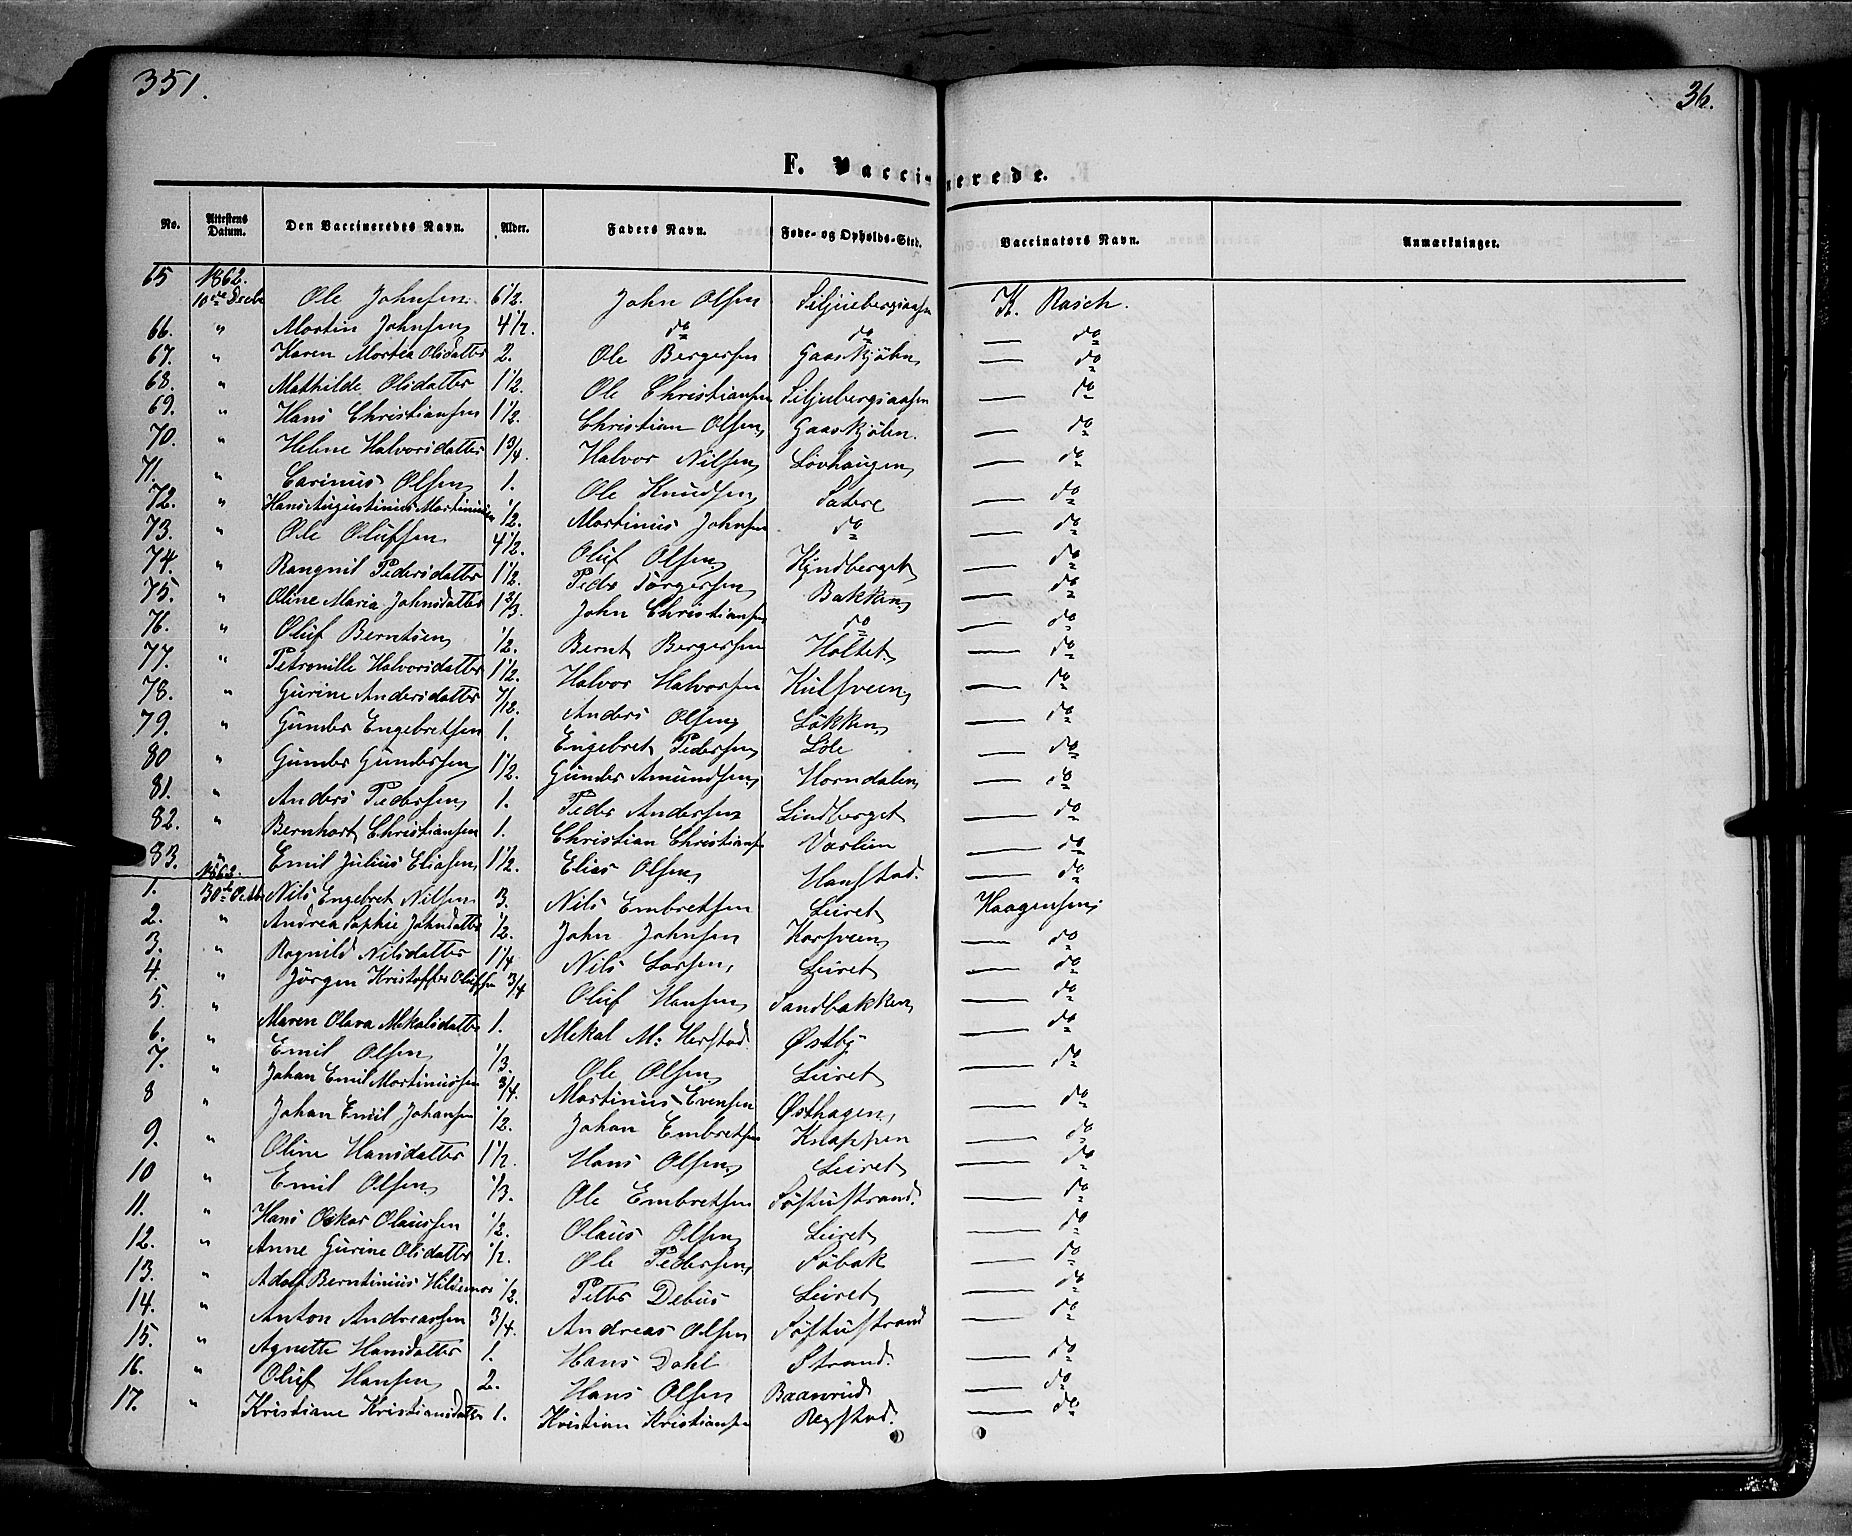 351.
36.
F. Vaccinerede.
No. Attestens Datum. Den Vaccineredes Navn. Alder. Faders Navn. Føde- og Opholds-Sted. Vaccinators Navn. Anmærkninger.
65 1862. 10de Decbr Ole Johnsen 6 1/2. John Olsen Siljuebergsaasen K. Rasch.
66. " Martin Johnsen 4 1/2. do do — do
67. " Karen Martea Olsdatter 2. Ole Bergersen Gaaskjølen — do
68. " Mathilde Olsdatter 1 1/2. Ole Christiansen Siljubergsaasen — do
69. " Hans Christiansen 1 1/2. Christian Olsen Gaaskjølen. — do
70. " Helene Halvorsdatter 1 3/4. Halvor Nilsen Lövhaugen — do
71. " Carinus Olsen 1. Ole Knudsen Sætere — do
72. " Hans Augustinus Martinusen 1/2. Martinus Johnsen do — do
73. " Ole Olufsen 4 1/2. Oluf Olsen Kyndberget — do
74. " Rangnil Pedersdatter 1 1/2. Peder Törgersen Bakken — do
75. " Oline Maria Johnsdatter 1 2/3. John Christiansen do — do
76. " Oluf Berntsen 1/2. Bernt Bergersen Holtet — do
77. " Petronille Halvorsdatter 1 1/2. Halvor Halvorsen Kulsveen — do
78. " Gurine Andersdatter 7/12. Anders Olsen Løkken — do
79. " Gunder Engebretsen 1. Engebret Pedersen Löle — do
80 " Gunder Gundersen 1 1/2. Gunder Amundsen Horndalen — do
81. " Anders Pedersen 1. Peder Andersen Lindberget — do
82. " Bernhart Christiansen 1. Christian Christians Varlien — do
83. " Emil Julius Eliasen 1 1/2. Elias Olsen Hanstad. — do
1863.
1. 30te Octbr Nils Engebret Nilsen 3. Nils Embretsen Leiret Haagensen
2. " Andrea Sophie Johnsdatter 1/2. John Johnsen Korsveen — do
3. " Ragnild Nilsdatter 1 1/4. Nils Larsen, Leiret — do
4. " Jörgen Kristoffer Olufsen 3/4 Oluf Hansen Sandbakken — do
5. " Maren Olava Mekalsdatter 1. Mekal M: Herstad Østby — do
6. " Emil Olsen 1/3. Ole Olsen Leiret — do
7. " Johan Emil Martinussen 3/4. Martinus Evensen Østhagen, — do
8 " Johan Emil Johansen 1/2. Johan Embretsen Knappen — do
9. " Oline Hansdatter 1 1/2. Hans Olsen Leiret — do
10 " Emil Olsen 1/3. Ole Embretsen Søftustrand. — do
11. " Hans Oskar Olaussen 1/2. Olaus Olsen Leiret — do
12. " Anne Gurine Olsdatter 1/2. Ole Pedersen, Søbak — do
13. " Adolf Berntinius 1/2. Petter Debus Leiret — do
14. " Anton Andreassen 3/4. Andreas Olsen Søftustrand — do
15. " Agnette Hansdatter 1. Hans Dahl Strand. — do
16. " Oluf Hansen 2. Hans Olsen Baanrud — do
17. " Kristiane Kristiansdatter 1. Kristian Kristiansen Regstad. — do